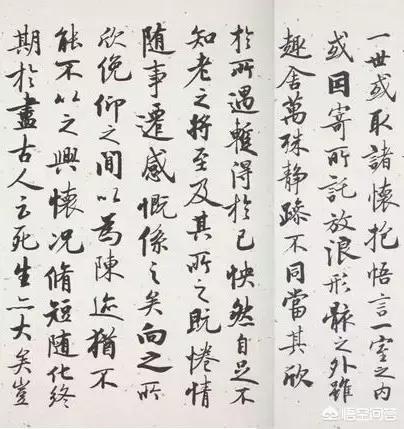 一世或取諸懷抱悟言一室之内
或因寄所託放浪形骸之外雖
趣舍萬殊静躁不同當其欣
於所遇暫得於己怏然自足不
知老之將至及其所之既惓情
随事遷感慨係之矣向之所
欣俛仰之間以為陳迹猶不
能不以之興懷況脩短随化終
期於盡古人云死生亦大矣豈
悟空问答